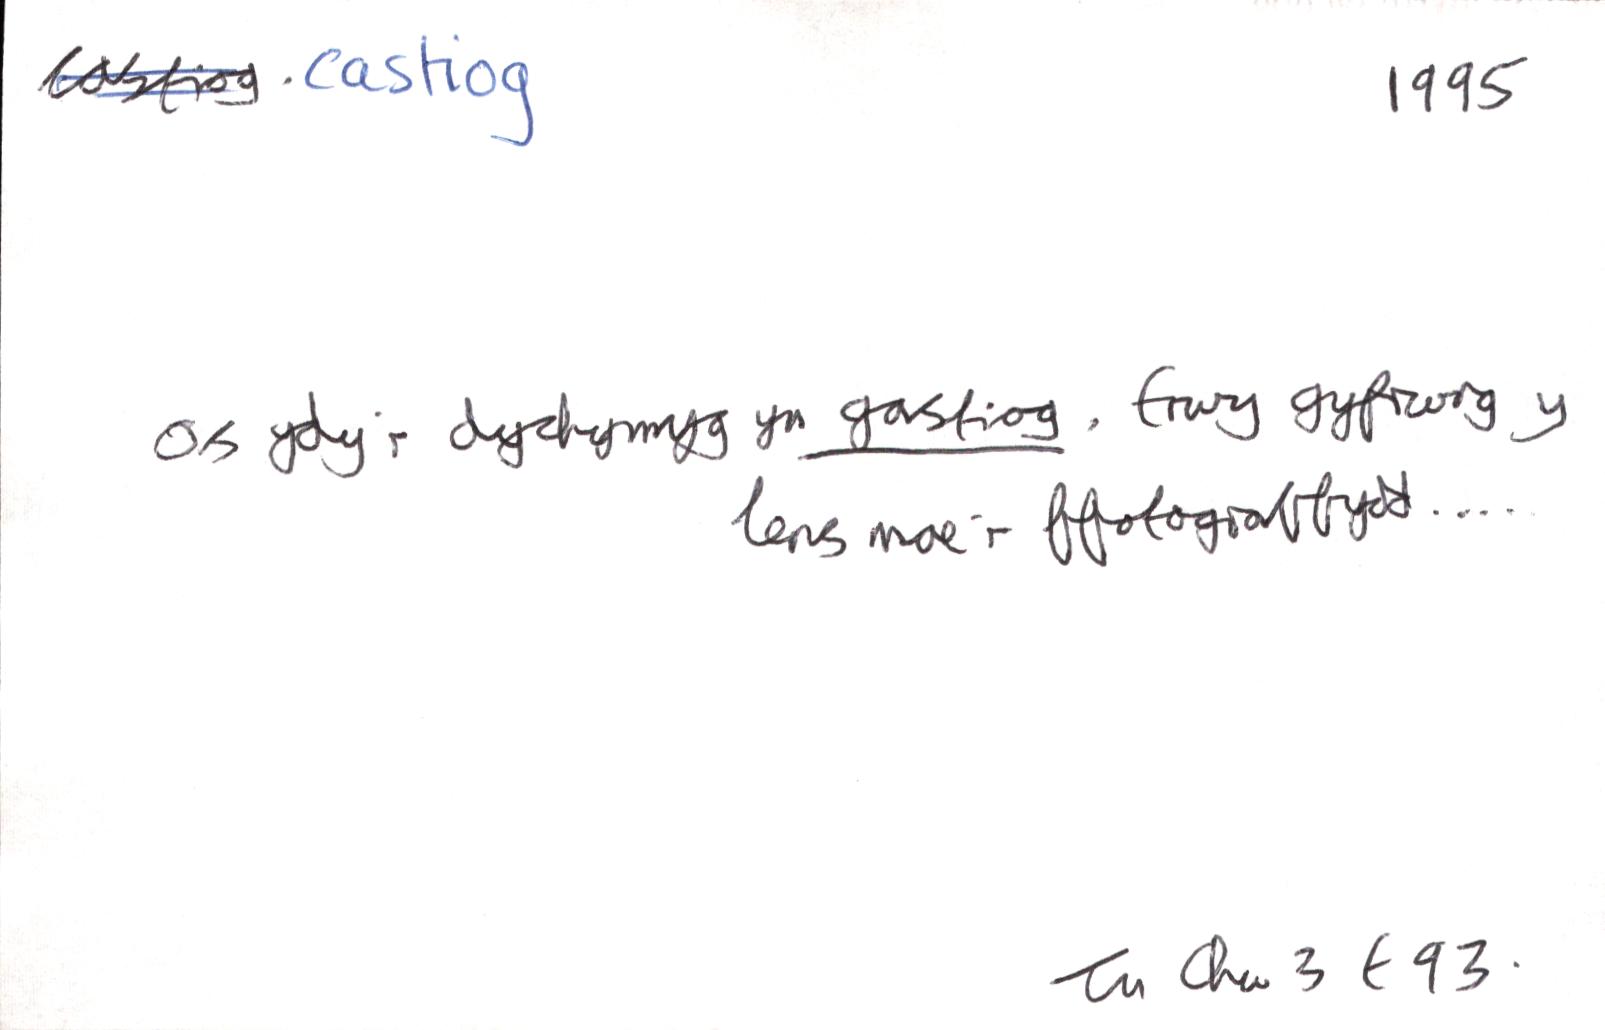 castiog . castiog 1995
Os ydy'r dychymyg yn gastiog, trwy gyfrwng y
lens mae'r ffotograffydd.....
Tu Chw 3 t 93.